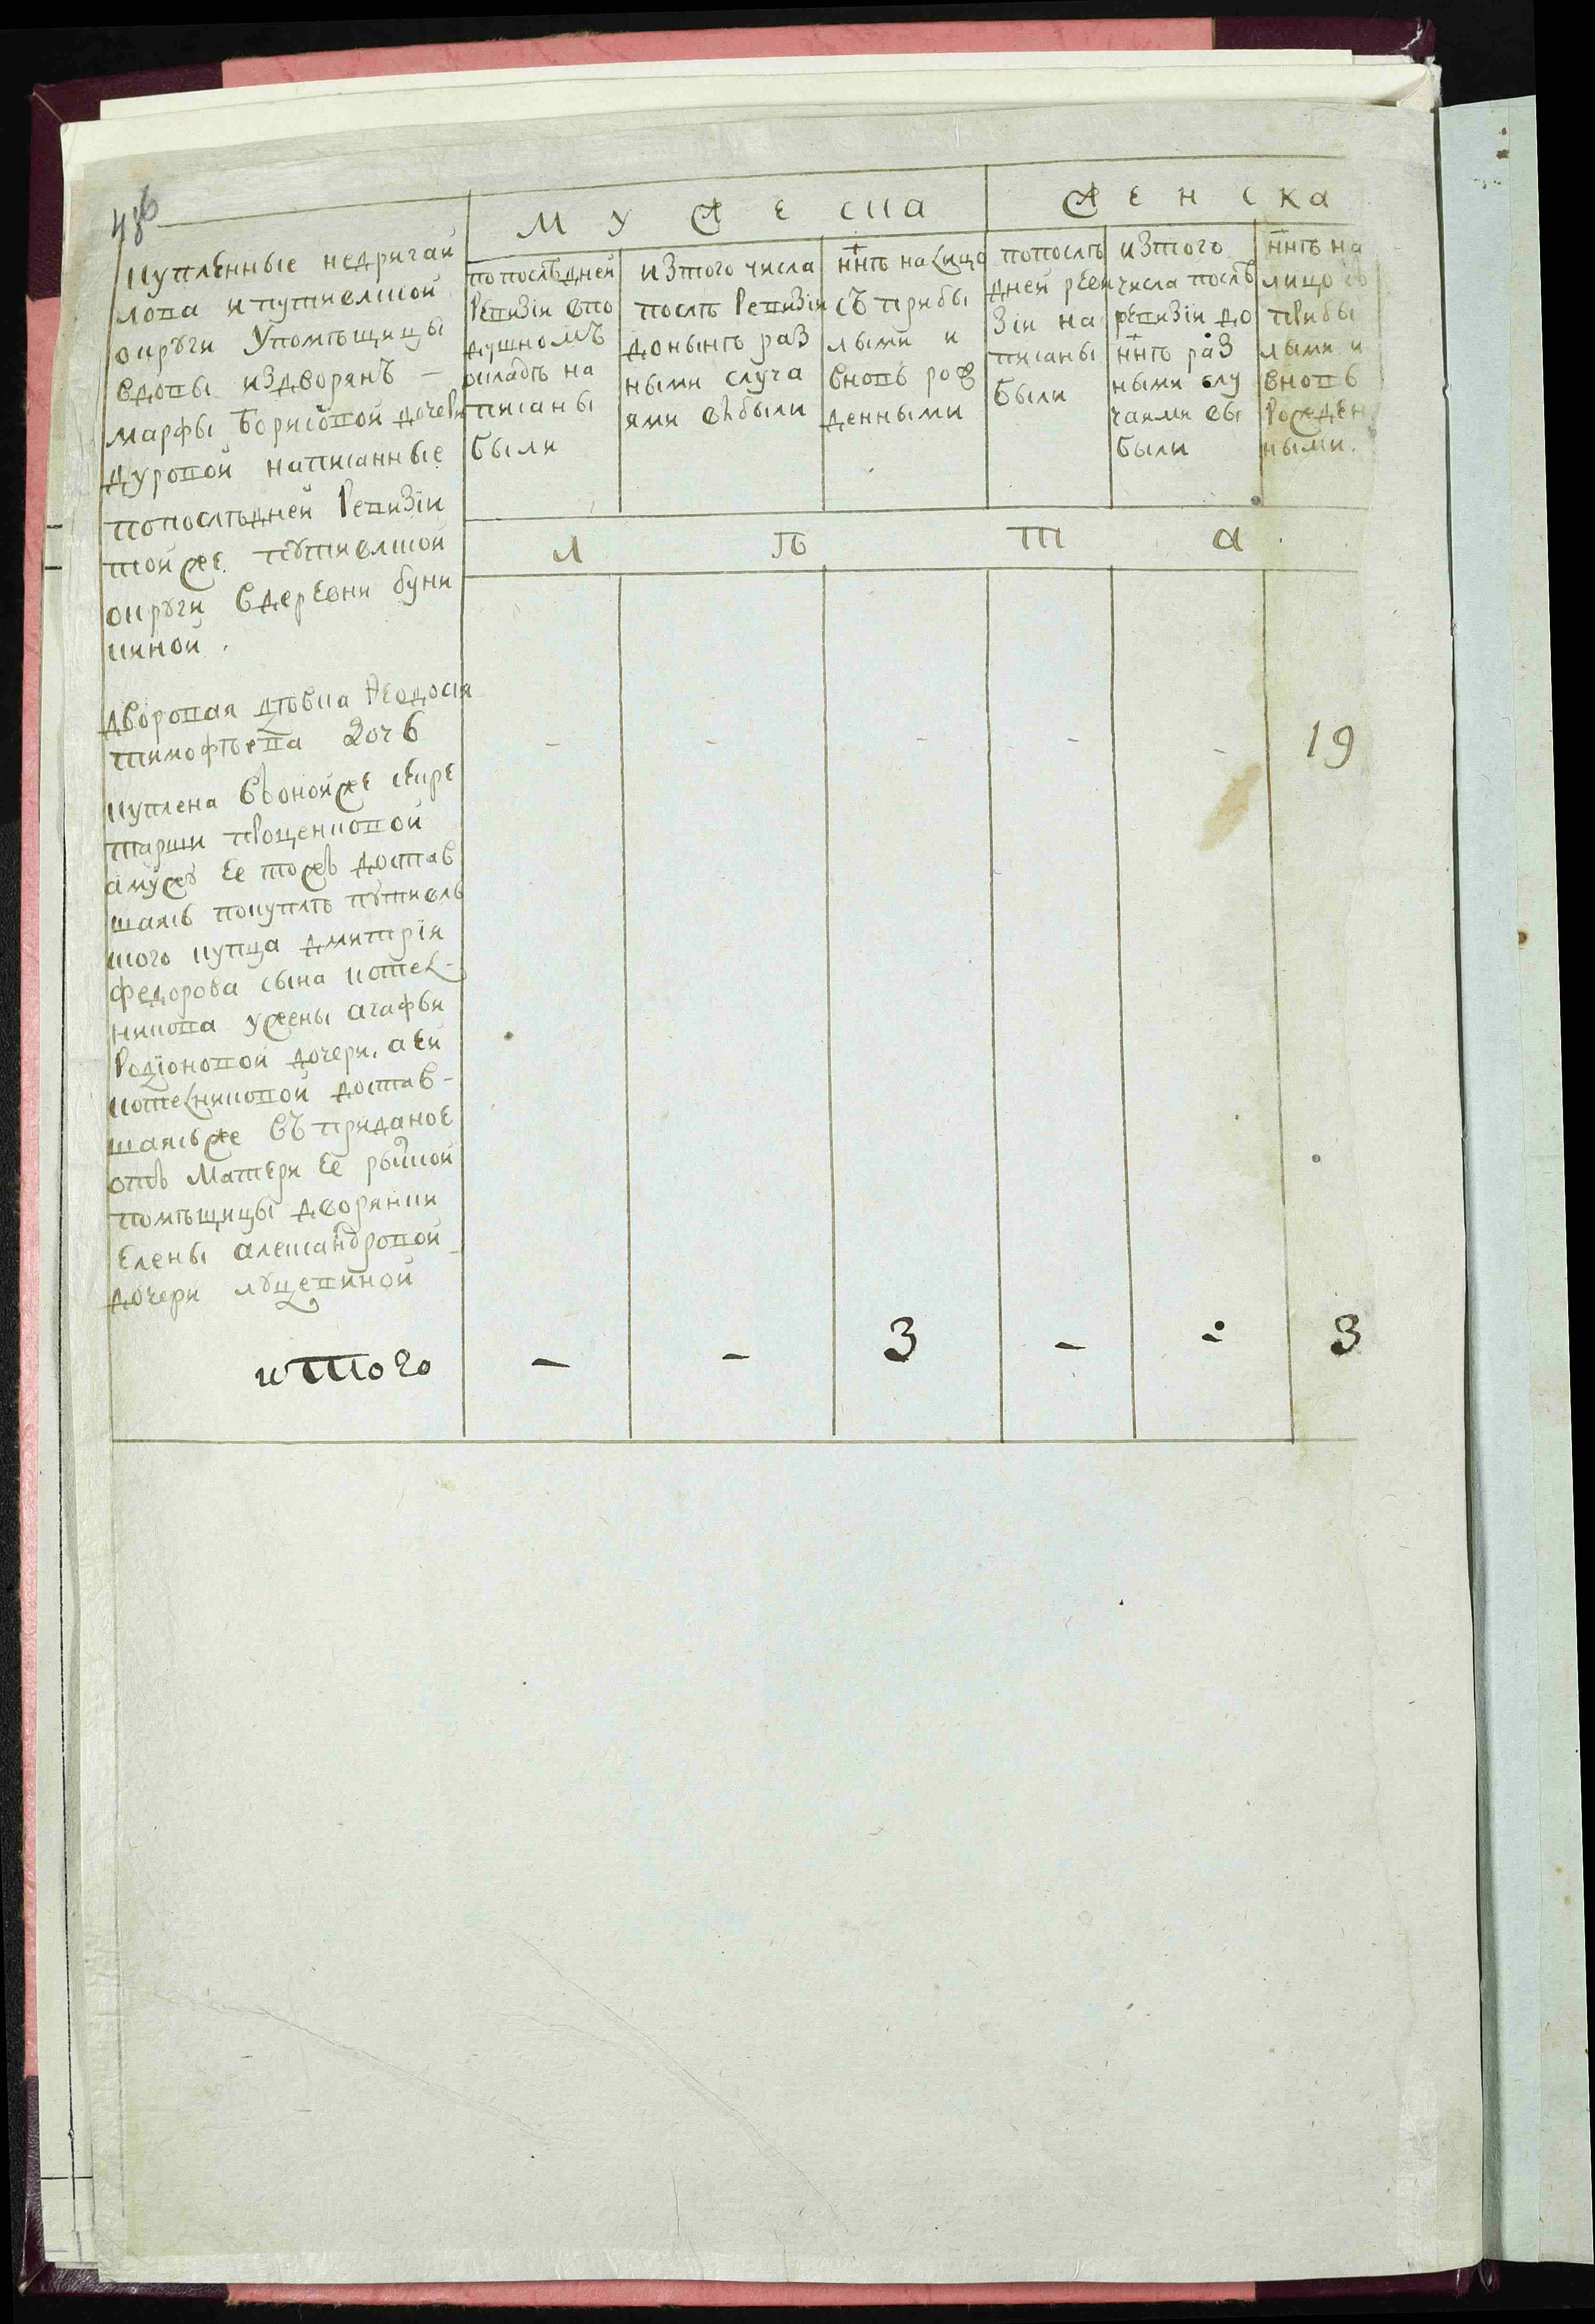 486
МУЖЕСКА
ЖЕНСКА
купленные недригай
лова ипутивлской
округи Упомѣщицы
вдовы издворянъ —
марфы Борисовой дочери
дуровой написанные
попослѣдней Ревизiи
тойже путивлской
округи вдеревни буни
киной.
попослѣдней
Ревизiи впо
душномъ
окладѣ на
писаны
были
изтого числа
послѣ Ревизiи
донынѣ раз
ными случа
ями выбыли
ннѣ налицо
съ прибы
лыми и
вновь рож
денными
попослѣ
дней реви
зiи на
писаны
были
изтого
числа послѣ
ревизiи до
ннѣ раз
ными слу
чаями вы
были
ннѣ на
лицо съ
прибы
лыми и
вновь
рожден
ными.
ЛѢТА
дворовая дѣвка Ѳеодосiя
тимофѣева дочь - - - - - 19
куплена вонойже секре
тарши проценковой
амужу ее тожъ достав
шаясь покупкѣ путивль
ского купца дмитрiя
федорова сына котел-
никова ужены агафьи
Родiоновой дочери. аей
котелниковой достав-
шаясьже въ приданое
отъ матери ее рылской
помѣщицы дворянки
Елены александровой
дочери луцевиной
итого - - 3 - - 3